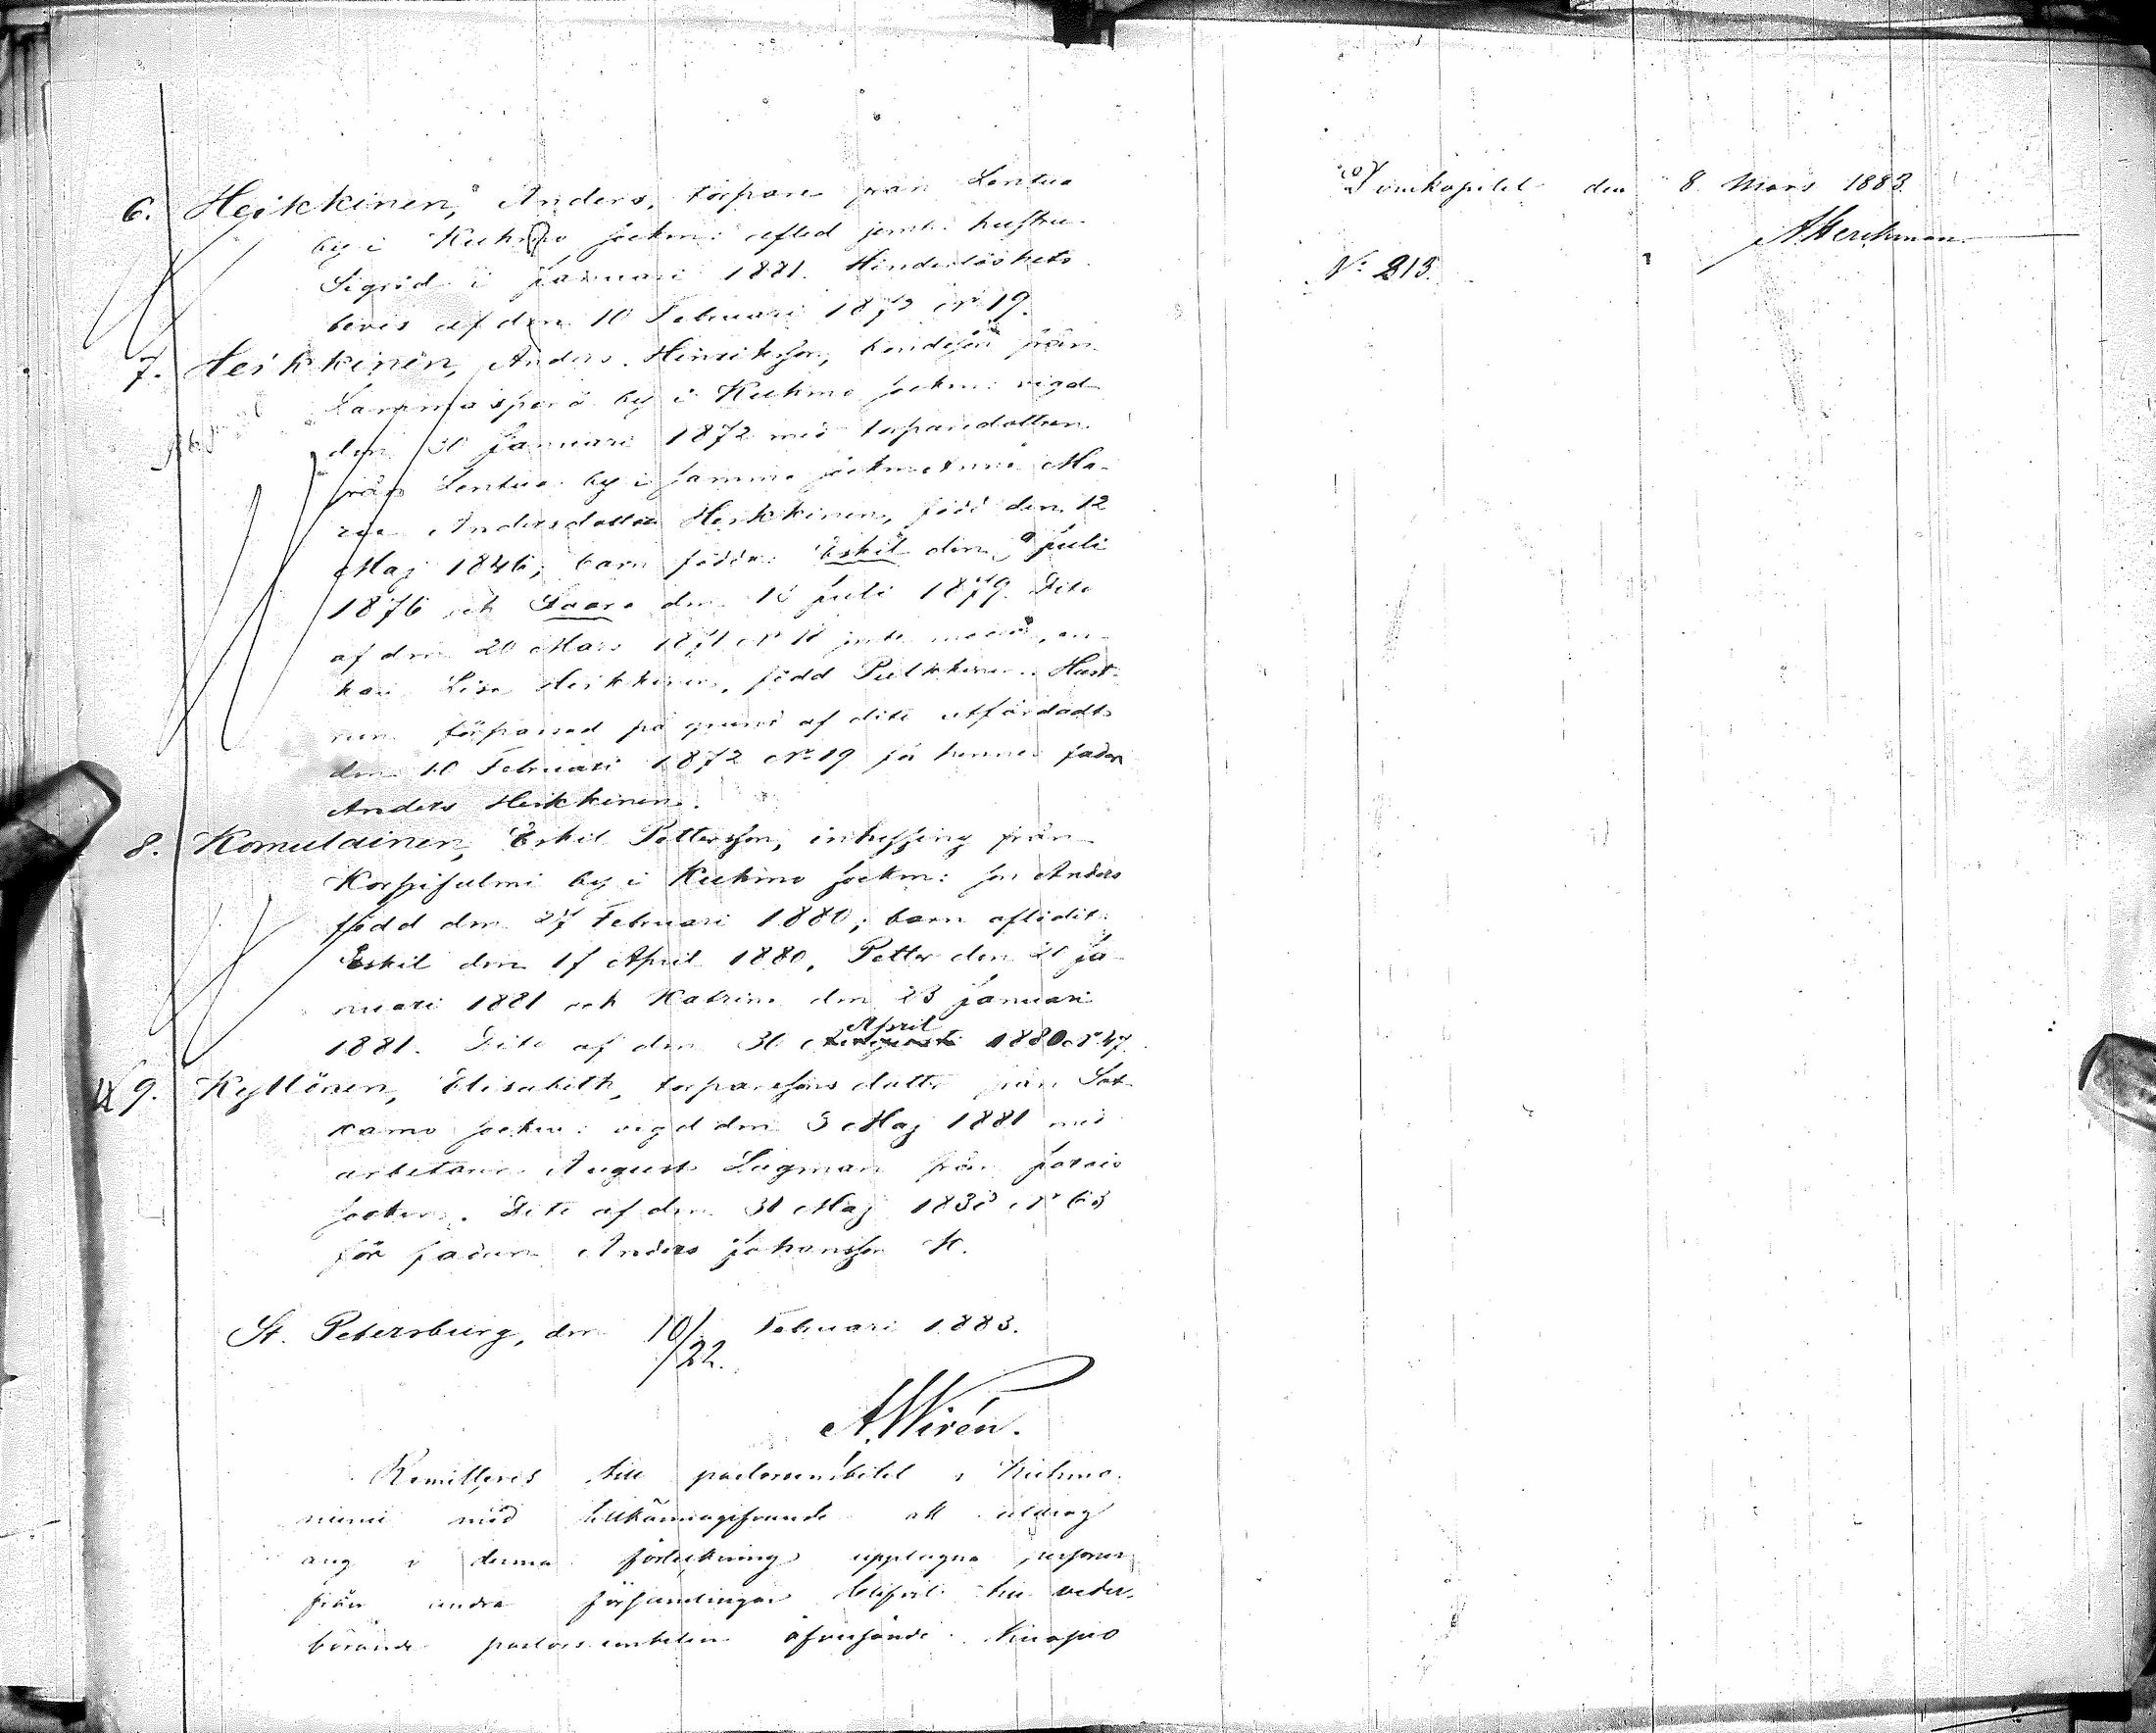 6. Heikkinen, Anders, torpare från Lentua
by i Kuhmo sockn: afled jemte hustru
Sigrid i Januari 1881. Hinderlöshets
bevis af den 10 Februari 1872 No 19.
7. Heikkinen, Anders Hinriksson, bondeson från
Lammasperä by i Kuhmo sockn: vigd
den 30 Januari 1872 med torparedottren
från Lentua by i samma sockn Anna Ma-
ria Andersdotter Heikkinen, född den 12
Maj 1846; barn födda: Eskil den Juli
1876 och Saara den 10 Juli 1879. Dito
af den 20 Mars 1871 No 18 jemte modren, en-
kan Lisa Heikkinen, född Pulkkinen. Hust-
run förpassad på grund af dito utfärdadt
den 10 Februari 1872 No 19 för hennes fader
Anders Heikkinen.
8. Komulainen, Eskil Pettersson, inhysing från
Korpisalmi by i Kuhmo sockn: son Anders
född den 27 Februari 1880; barn aflidit:
Eskil den 17 April 1880, Petter den 21 Ja-
nuari 1881 och Katrina den 23 Januari
1881. Dito af den 30 Augusti April 1880 No 47.
9. Kyllönen, Elisabeth, torparesons dotter från Sot-
kamo sockn: vigd den 3 Maj 1881 med
arbetaren August Lugman från Jorois
sockn. Dito af den 31 Maj No 63
för fadren Anders Johansson K.
St. Petersburg, den 10/22. Februari 1883.
A. Wirén.
Remitteres till pastorsembetet i Kuhmo-
niemi med tillkännagifvande att utdrag
ang i denna förteckning upptagna personer
från andra församlingar blifvit till veder-
börande pastorsembeten öfversände. Kuopio
Domkapitel den 8 Mars 1883.
No 213.